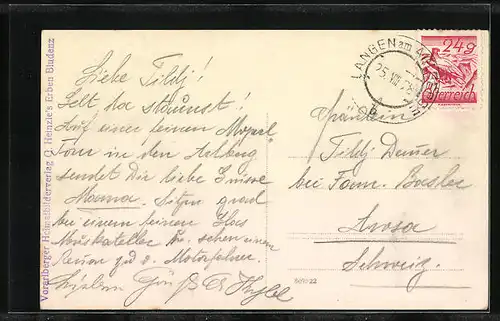 Vorarlberger Heimatbilderverlag C. Heinzle's Erben Bludenz
Liebe Tildj!
Gelt da staunst!
Auf einer feinen
Tour in den Arlberg
sendet Dir liebe Grüsse
Mama. Sitzen grad
bei einem feinen Glas
Muskateller u. sehen einem
Rennen zu v. Motorfahrer.
LANGEN am ARLBERG
25 VII
24g
Österreich
Fräulein
Tildj Dauer
bei Fam. Bosler
Arosa
Schweiz.